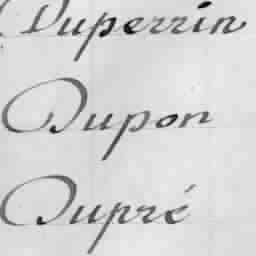 Duperrin
Dupon
Dupré